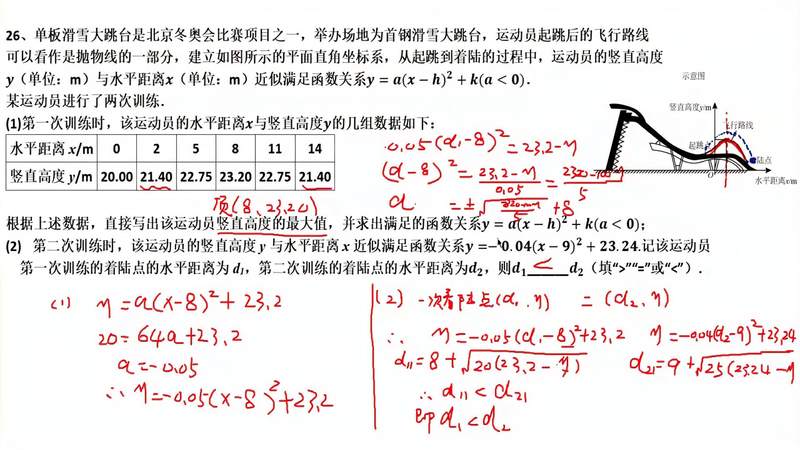 26、单板滑雪大跳台是北京冬奥会比赛项目之一，举办场地为首钢滑雪大跳台，运动员起跳后的飞行路线
可以看作是抛物线的一部分，建立如图所示的平面直角坐标系，从起跳到着陆的过程中，运动员的竖直高度
y（单位：m）与水平距离x（单位：m）近似满足函数关系y = a(x − h)² + k(a < 0).
某运动员进行了两次训练.
(1)第一次训练时，该运动员的水平距离x与竖直高度y的几组数据如下：
水平距离 x/m 0 2 5 8 11 14
竖直高度 y/m 20.00 21.40 22.75 23.20 22.75 21.40
示意图
竖直高度y/m
飞行路线
起跳点
着陆点
O
水平距离x/m
0.05(d₁-8)² = 23.2-y
(d-8)² = 23.2-y/0.05 =
顶(8, 23.20)
根据上述数据，直接写出该运动员竖直高度的最大值，并求出满足的函数关系y = a(x − h)² + k(a < 0)；
(2) 第二次训练时，该运动员的竖直高度 y 与水平距离 x 近似满足函数关系y=−0.04(x − 9)² + 23.24.记该运动员
第一次训练的着陆点的水平距离为 d₁，第二次训练的着陆点的水平距离为d₂，则d₁ < d₂（填“>”“=”或“<”）.
(1) y = a(x-8)² + 23.2
20 = 64a + 23.2
a = -0.05
∴ y = -0.05(x-8)² + 23.2
(2) 一次着陆点(d₁, y) = (d₂, y)
∴ y = -0.05(d₁-8)² + 23.2 y = -0.04(d₂-9)² + 23.24
d₁₁ = 8 + √20(23.2-y) d₂₁ = 9 + √25(23.24-y
∴ d₁₁ < d₂₁
即 d₁ < d₂